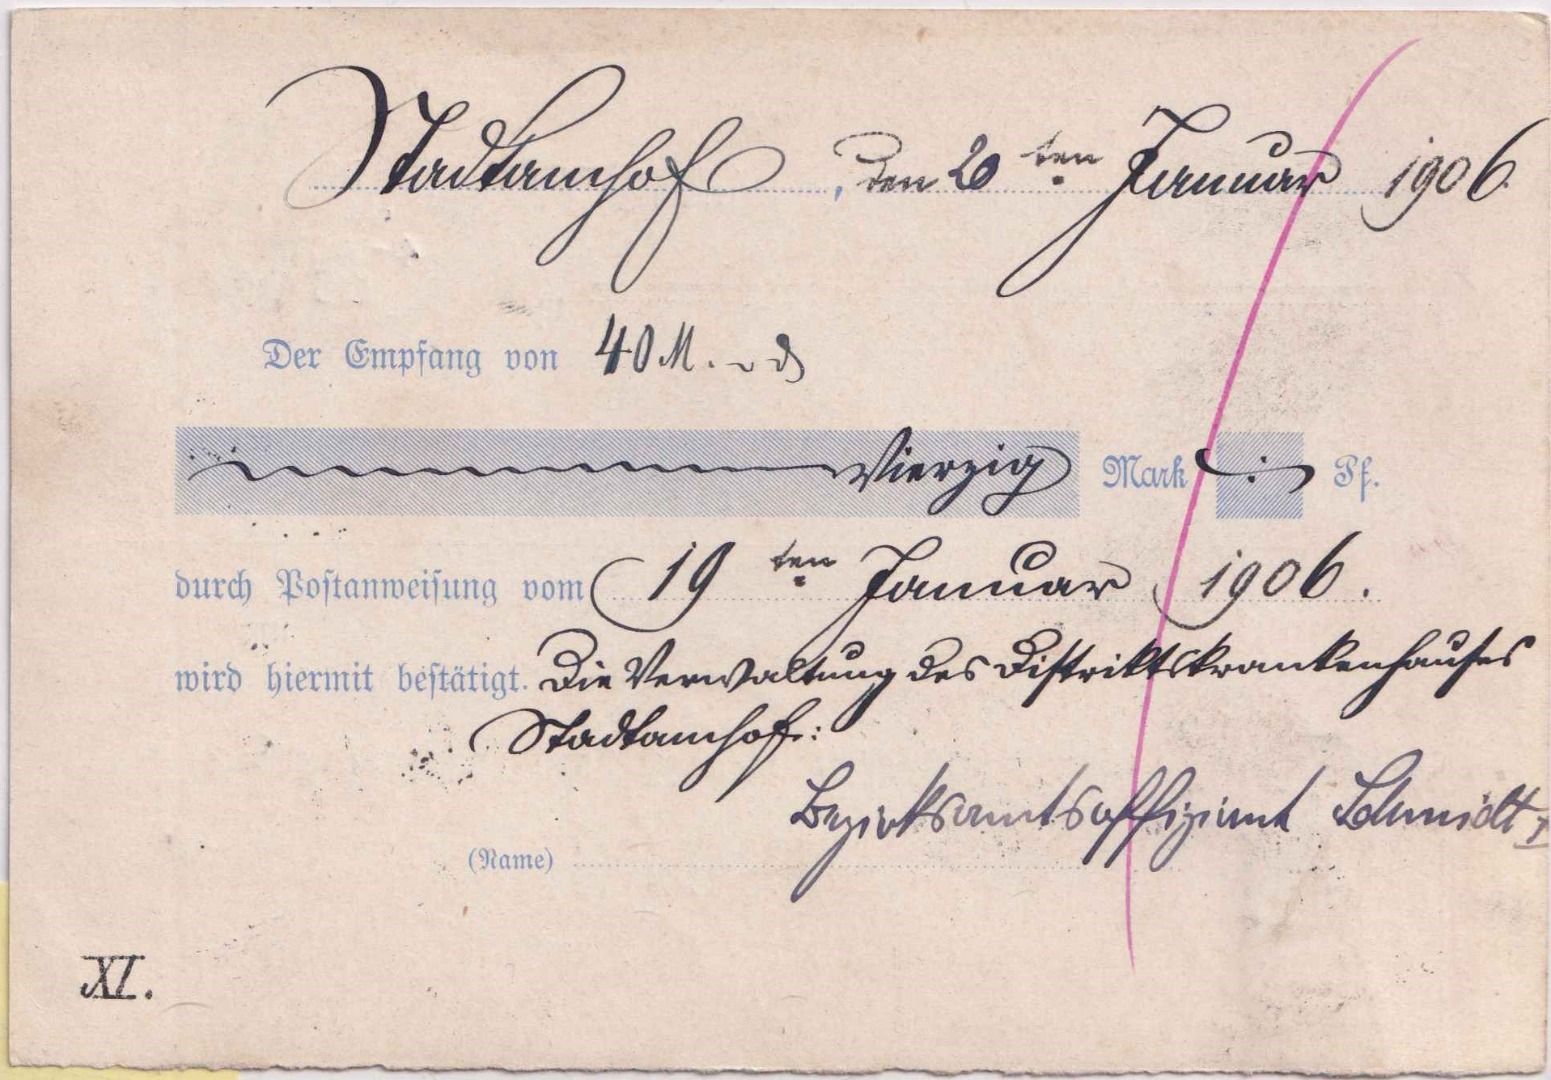 Stadtamhof, den 20ten Januar 1906.
Der Empfang von 40 M. - ₰
Vierzig Mark Pf.
durch Postanweisung vom 19ten Januar 1906.
wird hiermit bestätigt. Die Verwaltung des Distriktskrankenhauses
Stadtamhof:
Bezirksamtsoffiziant Schmidt
(Name)
XI.